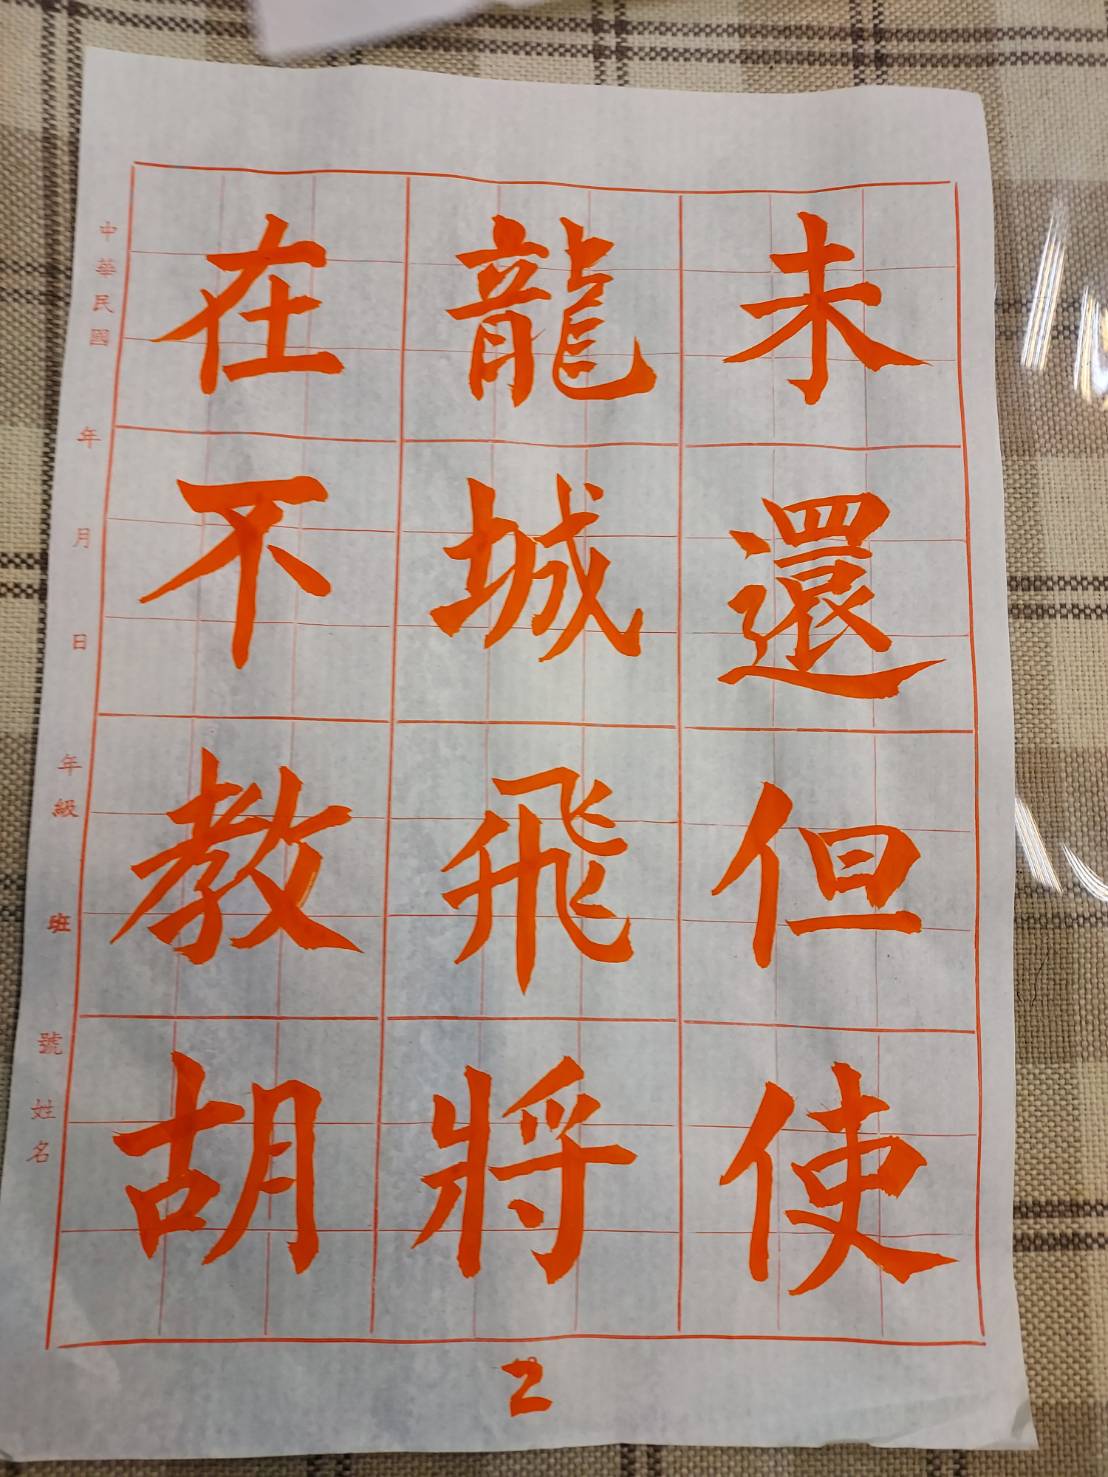 未還但使
龍城飛將
在不教胡
中華民國 年 月 日 年級 班 號 姓名
2